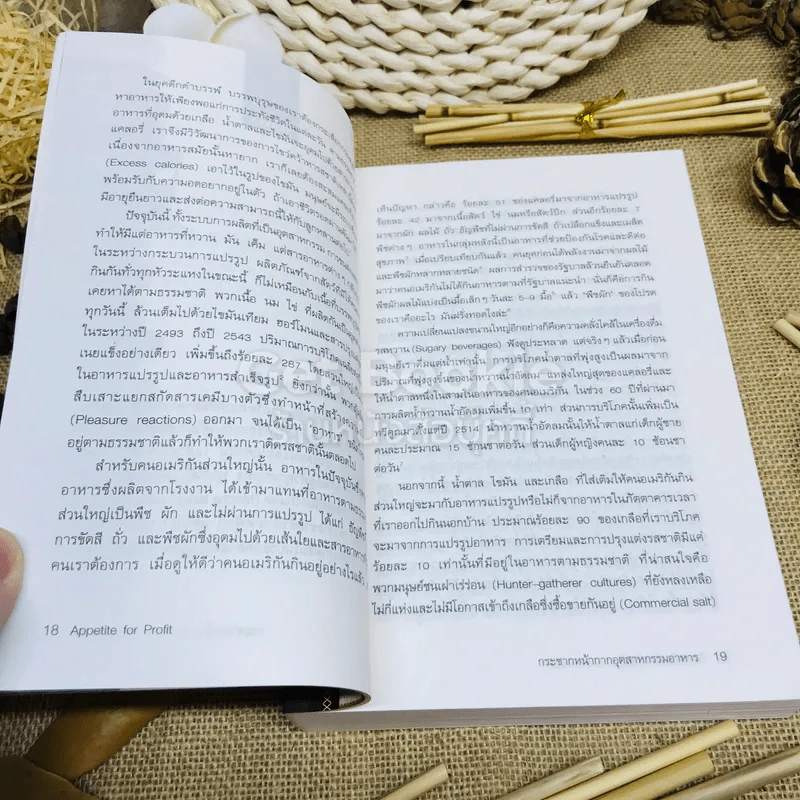 ในยุคดึกดำบรรพ์ บรรพบุรุษของเราต้อง
หาอาหารให้เพียงพอแก่การประทังชีวิตในแต่ละวัน
อาหารที่อุดมด้วยเกลือ น้ำตาลและไขมันจะอุดมไปด้วย
แคลอรี่ เราจึงมีวิวัฒนาการของการไขว่คว้าหา
เนื่องจากอาหารสมัยนั้นหายาก เราก็เลยต้องสะสม
(Excess calories) เอาไว้ในรูปของไขมัน มนุษย์
พร้อมรับกับความอดอยากอยู่ในตัว ถ้าเอาชีวิตรอด
มีอายุยืนยาวและส่งต่อความสามารถนี้ให้กับลูกหลาน
ปัจจุบันนี้ ทั้งระบบการผลิตที่เป็นอุตสาหกรรม
ทำให้มีแต่อาหารที่หวาน มัน เค็ม แต่สารอาหารต่าง ๆ
ในระหว่างกระบวนการแปรรูป ผลิตภัณฑ์จากสัตว์ที่
กินกันทั่วทุกหัวระแหงในขณะนี้ ก็ไม่เหมือนกับเนื้อที่บรรพบุรุษ
เคยหาได้ตามธรรมชาติ พวกเนื้อ นม ไข่ ที่ผลิตกัน
ทุกวันนี้ ล้วนเต็มไปด้วยไขมันเทียม ฮอร์โมนและสาร
ในระหว่างปี 2493 ถึงปี 2543 ปริมาณการบริโภค
เนยแข็งอย่างเดียว เพิ่มขึ้นถึงร้อยละ 287 โดยส่วนใหญ่
ในอาหารแปรรูปและอาหารสำเร็จรูป ยิ่งกว่านั้น
สืบเสาะแยกสกัดสารเคมีบางตัวซึ่งทำหน้าที่สร้าง
(Pleasure reactions) ออกมา จนได้เป็น
อยู่ตามธรรมชาติแล้วก็ทำให้พวกเราติดรสชาตินั้นตลอดไป
สำหรับคนอเมริกันส่วนใหญ่นั้น อาหารในปัจจุบัน
อาหารซึ่งผลิตจากโรงงาน ได้เข้ามาแทนที่อาหารตามธรรมชาติ
ส่วนใหญ่เป็นพืช ผัก และไม่ผ่านการแปรรูป ได้แก่
การขัดสี ถั่ว และพืชผักซึ่งอุดมไปด้วยเส้นใยและสารอาหาร
คนเราต้องการ เมื่อดูให้ดีว่าคนอเมริกันกินอยู่อย่างไรแล้ว
18 Appetite for Profit
เห็นปัญหา กล่าวคือ ร้อยละ 51 ของแคลอรี่มาจากอาหารแปรรูป
ร้อยละ 42 มาจากเนื้อสัตว์ ไข่ นมหรือสัตว์ปีก ส่วนอีกร้อยละ 7
มาจากผัก ผลไม้ ถั่ว ธัญพืชที่ไม่ผ่านการขัดสี ถั่วเปลือกแข็งและเมล็ด
พืชต่าง ๆ อาหารในกลุ่มหลังนี้เป็นอาหารที่ช่วยป้องกันโรคและดีต่อ
สุขภาพ เมื่อเปรียบเทียบกันแล้ว คนยุคก่อนได้พลังงานมาจากผลไม้
และพืชผักหลากหลายชนิด ผลการสำรวจของรัฐบาลล้วนยืนยันตลอด
มาว่าคนอเมริกันไม่ได้กินอาหารตามที่รัฐบาลแนะนำ นั่นก็คือการกิน
พืชผักผลไม้แบ่งเป็นมื้อเล็ก ๆ วันละ 5–9 มื้อ แล้ว "พืชผัก" ของโปรด
ของเราคืออะไร มันฝรั่งทอดไงล่ะ
ความเปลี่ยนแปลงขนานใหญ่อีกอย่างก็คือความคลั่งไคล้ในเครื่องดื่ม
รสหวาน (Sugary beverages) ฟังดูประหลาด แต่จริง ๆ แล้วเมื่อก่อน
มนุษย์เราดื่มแต่น้ำเท่านั้น การบริโภคน้ำตาลที่พุ่งสูงเป็นผลมาจาก
ปริมาณที่พุ่งสูงขึ้นของน้ำหวานอัดลม แหล่งใหญ่สุดของแคลอรี่และ
ให้น้ำตาลหนึ่งในสามในอาหารของคนอเมริกัน ในช่วง 60 ปีที่ผ่านมา
การผลิตน้ำหวานน้ำอัดลมเพิ่มขึ้น 10 เท่า ส่วนการบริโภคนั้นเพิ่มเป็น
ทวีคูณมาตั้งแต่ปี 2514 น้ำหวานน้ำอัดลมนั้นให้น้ำตาลแก่เด็กผู้ชาย
คนละประมาณ 15 ช้อนชาต่อวัน ส่วนเด็กผู้หญิงคนละ 10 ช้อนชา
ต่อวัน
นอกจากนี้ น้ำตาล ไขมัน และเกลือ ที่ใส่เติมให้คนอเมริกันกิน
ส่วนใหญ่จะมากับอาหารแปรรูปหรือไม่ก็จากอาหารในภัตตาคารเวลา
ที่เราออกไปกินนอกบ้าน ประมาณร้อยละ 90 ของเกลือที่เราบริโภค
จะมาจากการแปรรูปอาหาร การเตรียมและการปรุงแต่งรสชาติมีแค่
ร้อยละ 10 เท่านั้นที่มีอยู่ในอาหารตามธรรมชาติ ที่น่าสนใจคือ
พวกมนุษย์ชนเผ่าเร่ร่อน (Hunter-gatherer cultures) ที่ยังหลงเหลือ
ไม่กี่แห่งและไม่มีโอกาสเข้าถึงเกลือซึ่งซื้อขายกันอยู่ (Commercial salt)
กระชากหน้ากากอุตสาหกรรมอาหาร 19